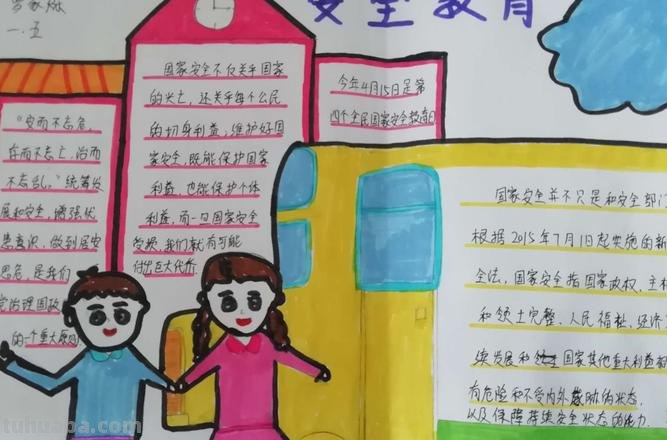 一.五
安全教育
国家安全不仅关乎国家
的兴亡，还关乎每个公民
的切身利益，维护好国
家安全，既能保护国家
利益，也能保护个体
利益，而一旦国家安全
受损，我们就有可能
付出巨大代价
今年4月15日是第
四个全民国家安全教育日
"安而不忘危，
存而不忘亡，治而
不忘乱。"统筹发
展和安全，增强忧
患意识，做到居安
思危，是我们
党治理国政
的一个重大原则
国家安全并不只是和安全部门
根据2015年7月1日起实施的新
全法，国家安全指国家政权、主权
和领土完整、人民福祉、经济
续发展和国家其他重大利益
有危险和不受内外威胁的状态，
以及保障持续安全状态的能力
tuhuaba.com